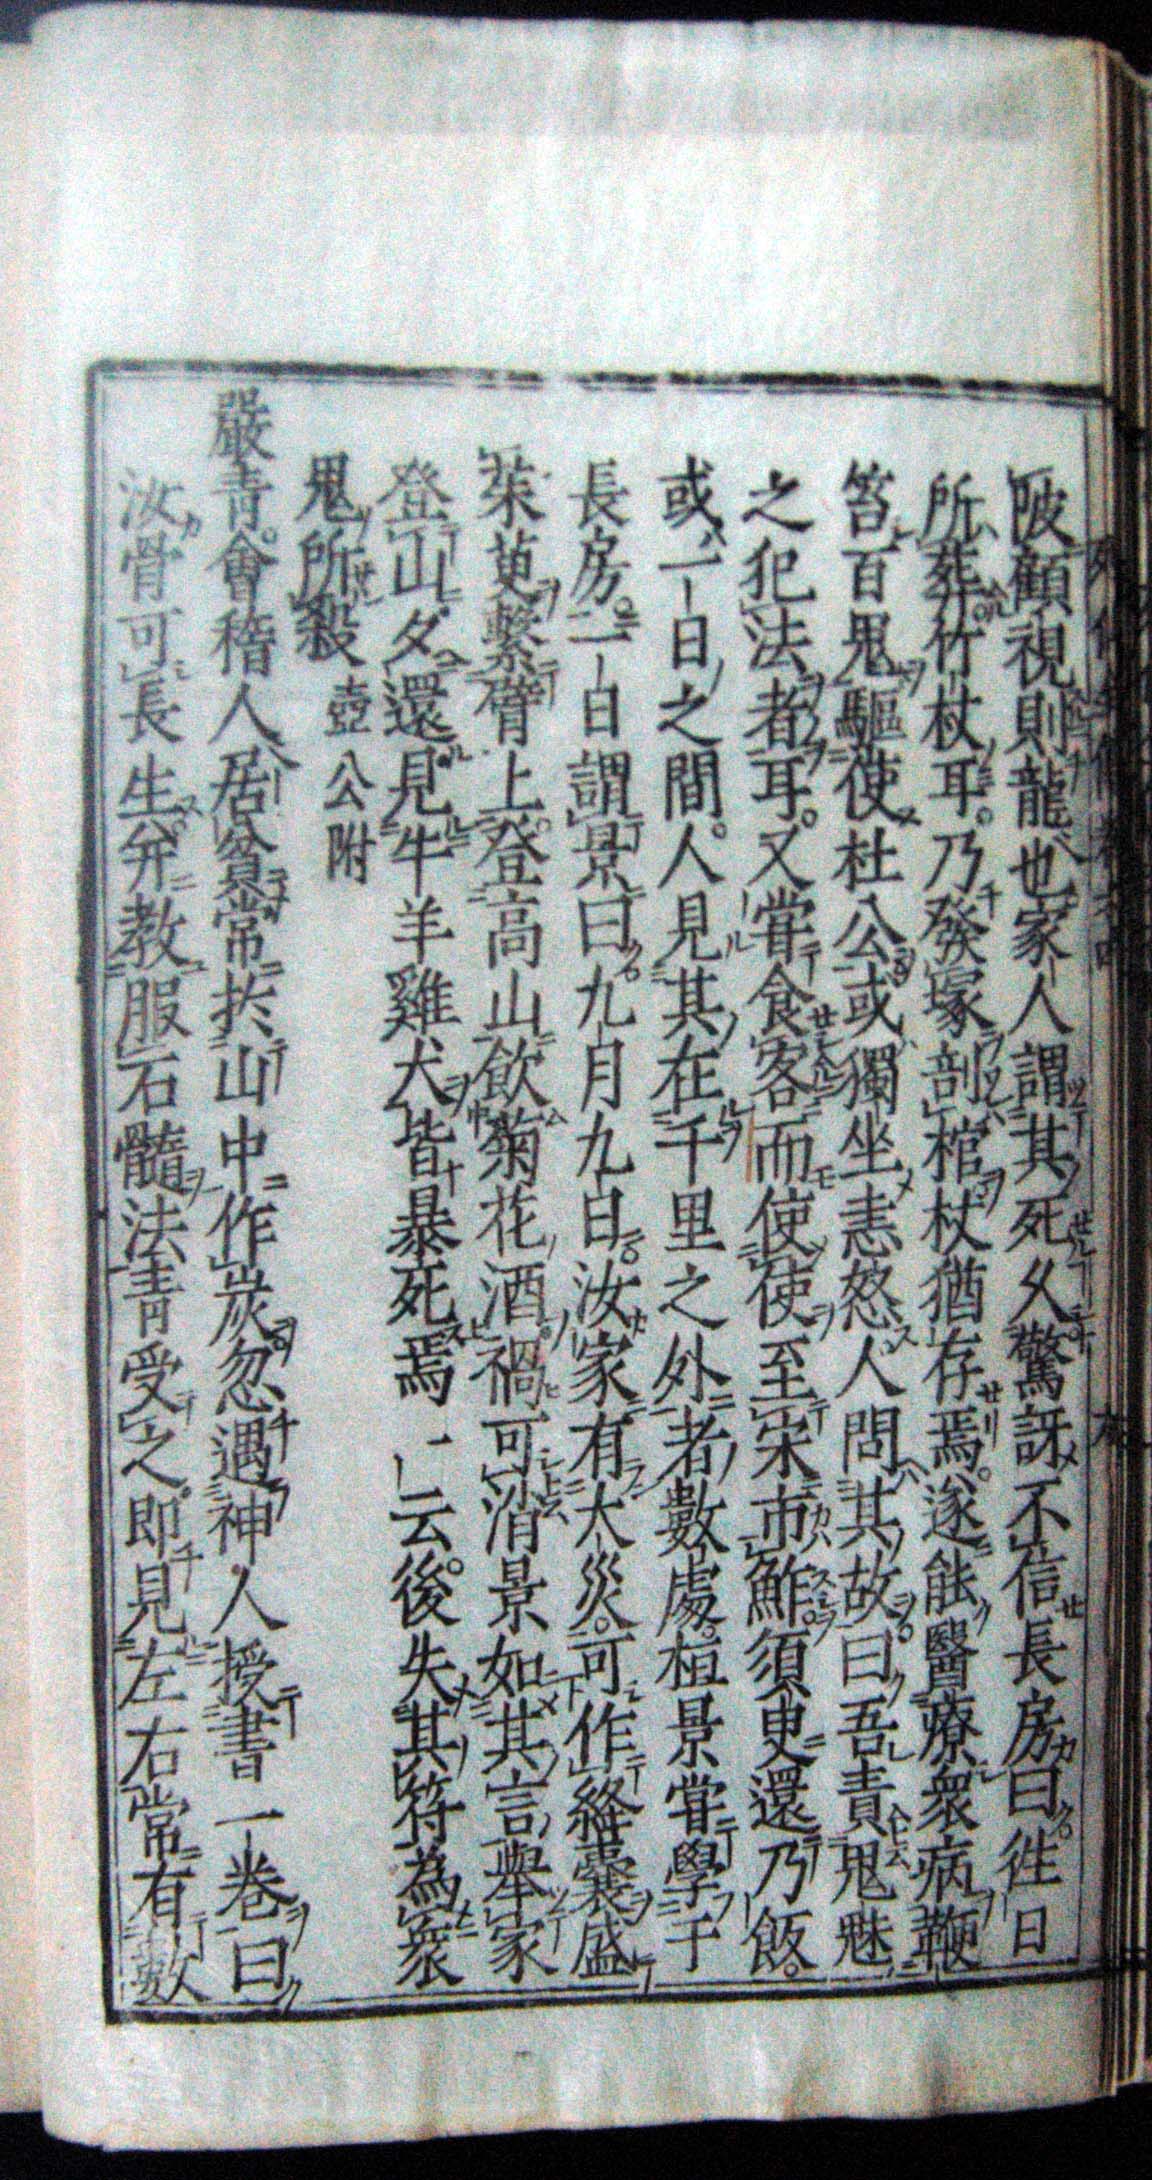 陂顧視則龍也家人謂其死久驚訝不信長房曰往日
所葬竹杖耳乃發塚剖棺杖猶存焉遂能醫療衆病鞭
笞百鬼驅使杜公或獨坐恚怒人問其故曰吾責鬼魅
之犯法者耳又甞食客而使使至宋市鮓須臾還乃飯
或一日之間人見其在千里之外者數處桓景甞學于
長房一日謂景曰九月九日汝家有大災可作絳囊盛
茱萸繫臂上登高山飲菊花酒禍可消景如其言舉家
登山夕還見牛羊雞犬皆暴死焉一云後失其符為衆
鬼所殺 壺公附
嚴青會稽人居貧常於山中作炭忽遇神人授書一巻曰
汝骨可長生并教服石髓法青受之即見左右常有數